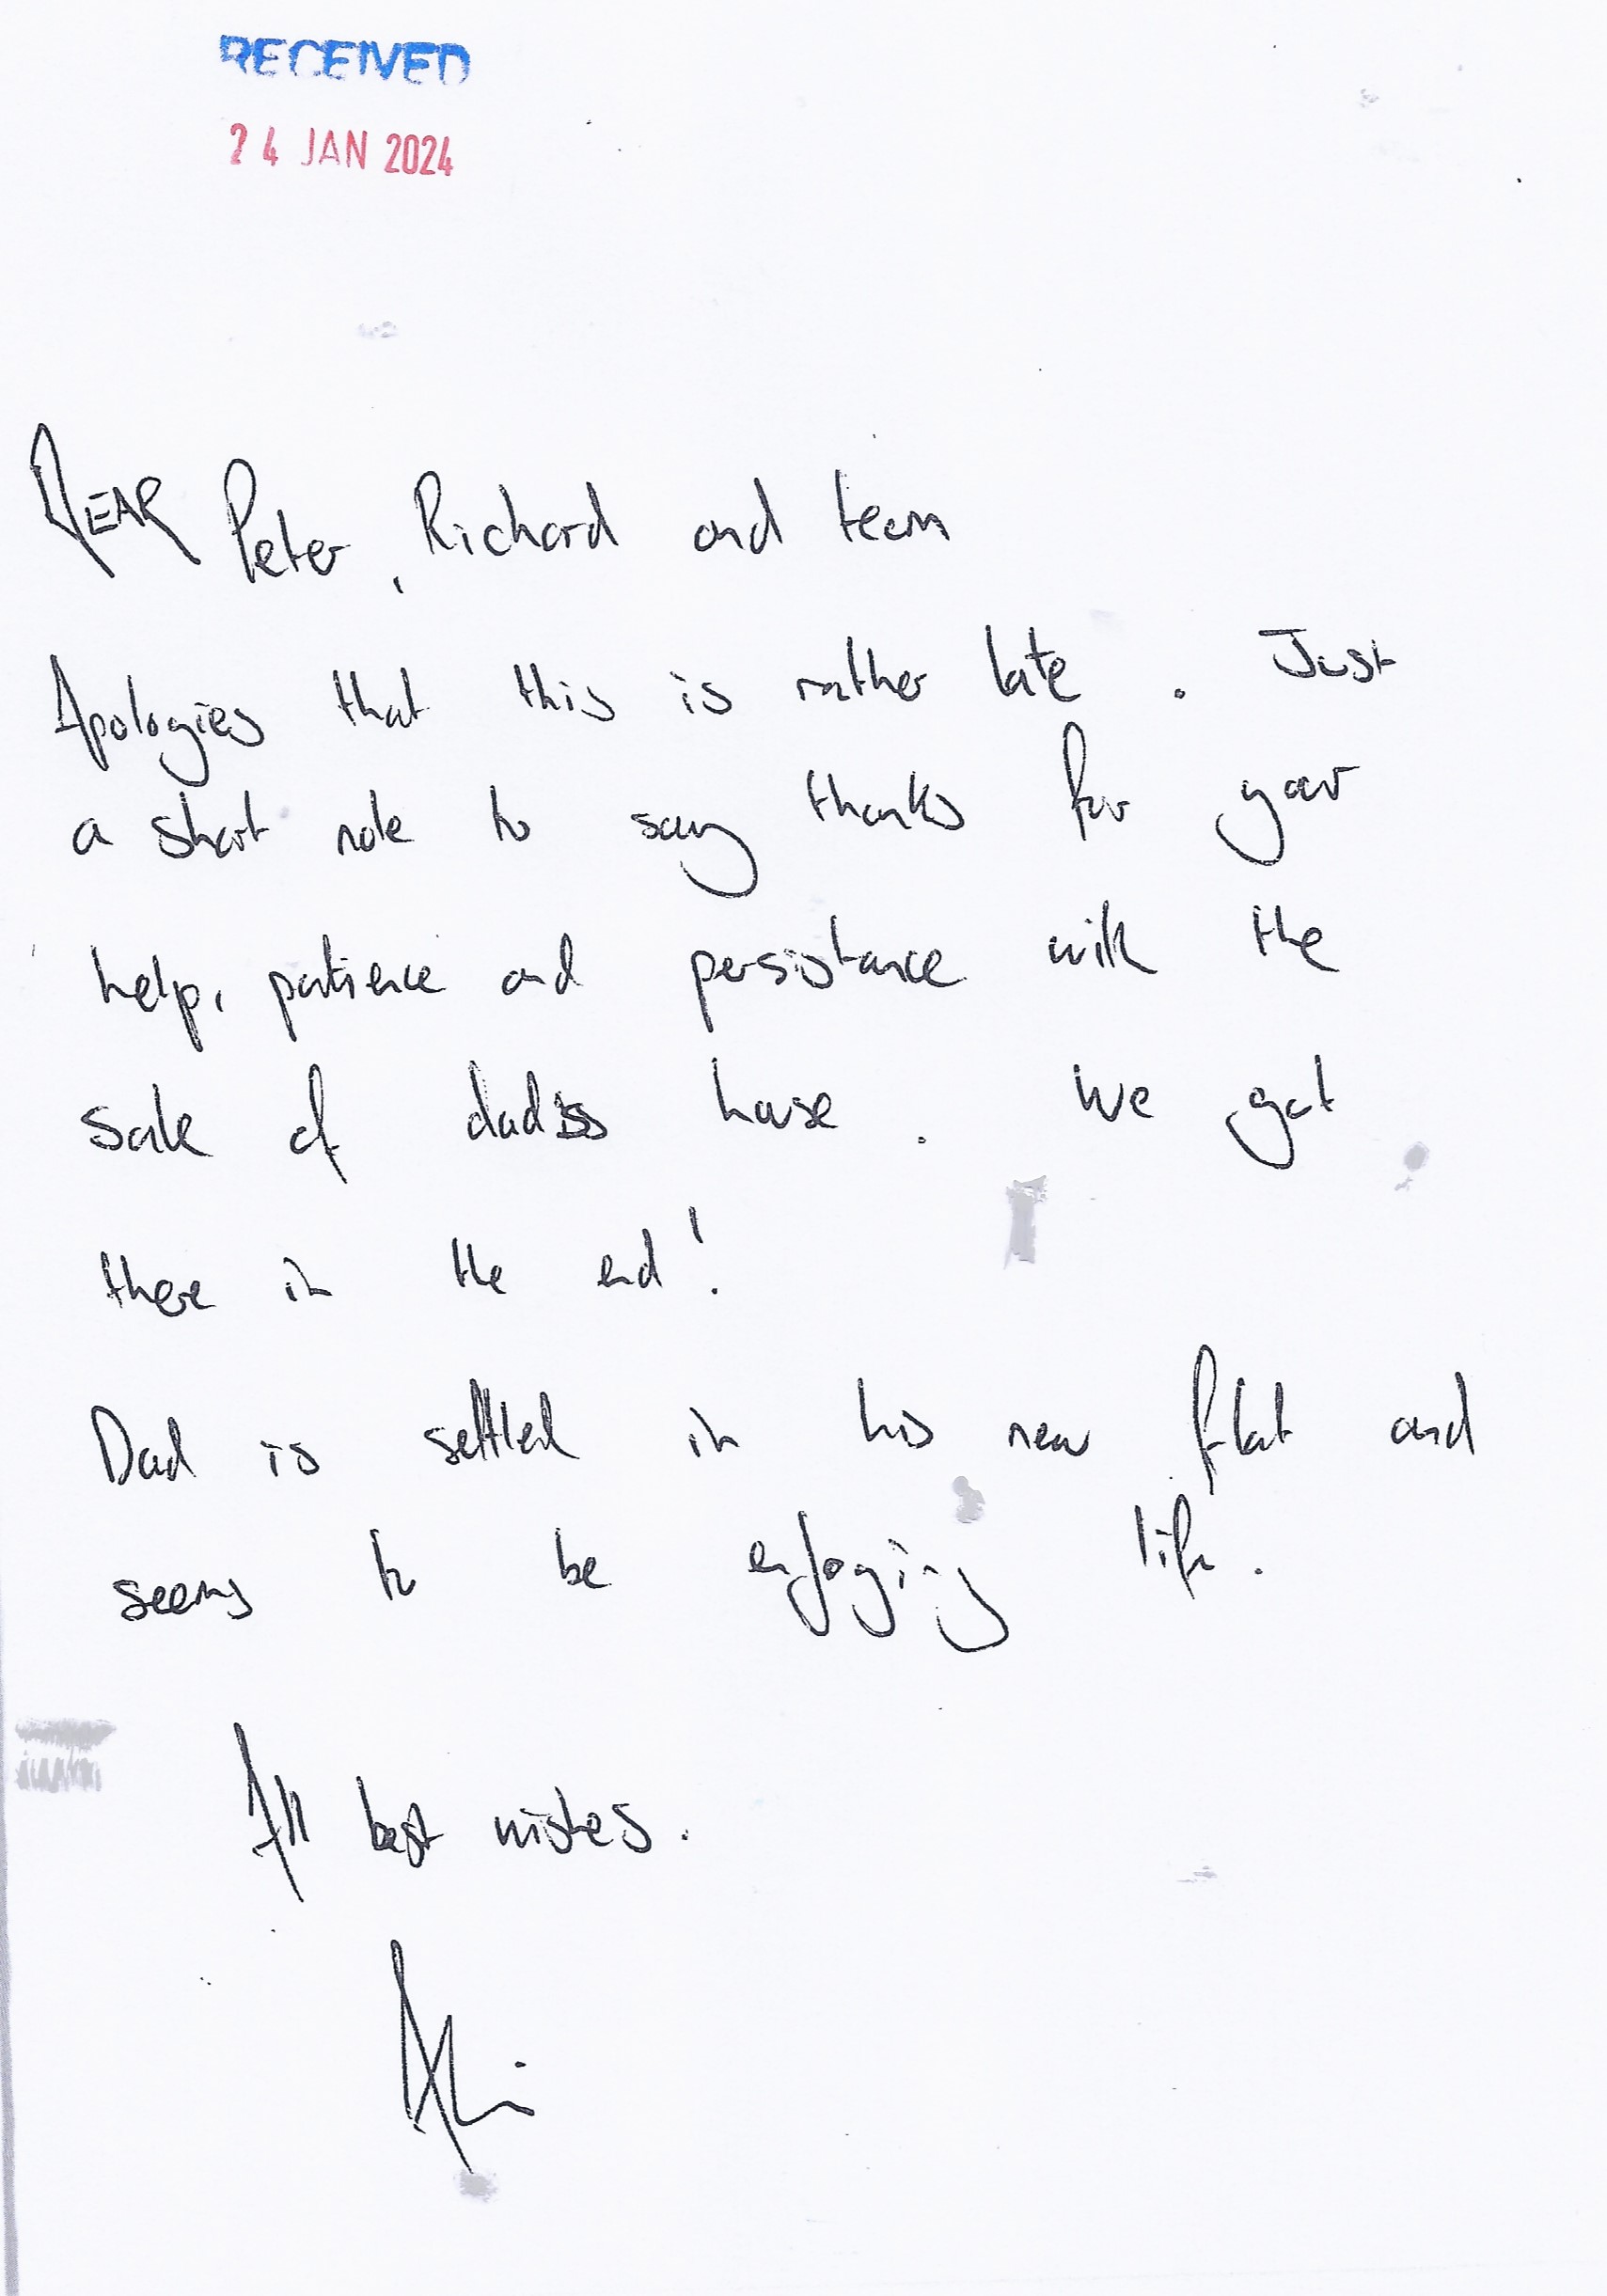 RECEIVED
24 JAN 2024
DEAR Peter, Richard and team
Apologies that this is rather late. Just
a short note to say thanks for your
help, patience and persistance with the
sale of dad's house. We got
there in the end!
Dad is settled in his new flat and
seems to be enjoying life.
All best wishes.
Ali